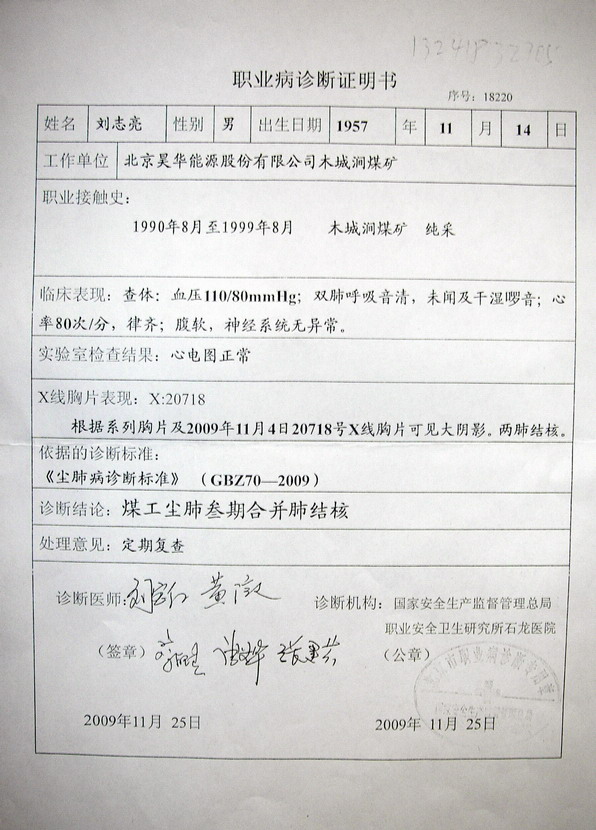 职业病诊断证明书
序号：18220
姓名 刘志亮 性别 男 出生日期 1957 年 11 月 14 日
工作单位 北京昊华能源股份有限公司木城涧煤矿
职业接触史：
1990年8月至1999年8月 木城涧煤矿 纯采
临床表现：查体：血压110/80mmHg；双肺呼吸音清，未闻及干湿啰音；心
率80次/分，律齐；腹软，神经系统无异常。
实验室检查结果：心电图正常
X线胸片表现：X:20718
根据系列胸片及2009年11月4日20718号X线胸片可见大阴影。两肺结核。
依据的诊断标准：
《尘肺病诊断标准》（GBZ70—2009）
诊断结论：煤工尘肺叁期合并肺结核
处理意见：定期复查
诊断医师： 诊断机构：国家安全生产监督管理总局
职业安全卫生研究所石龙医院
（签章） （公章）
2009年11月 25日 2009年 11月 25日